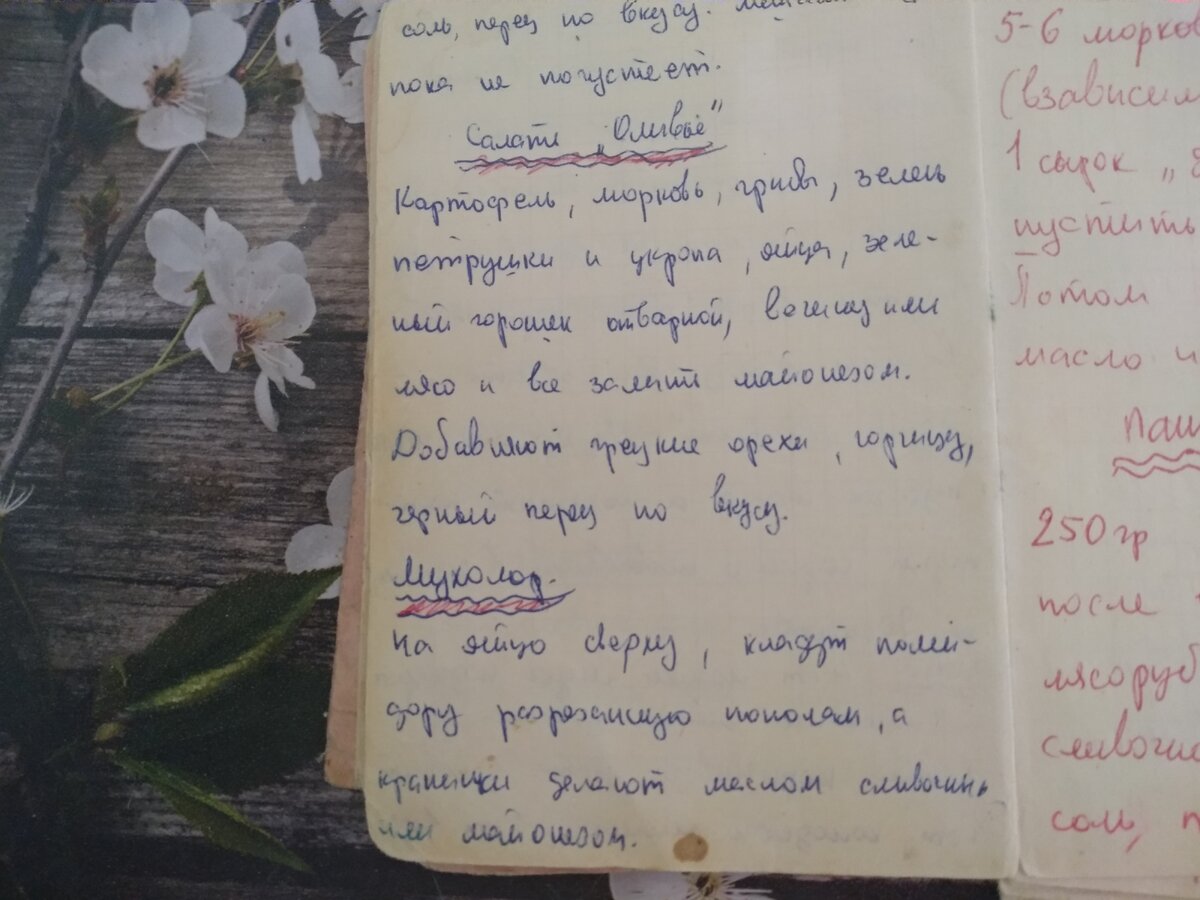 соль, перец по вкусу.
пока не погустеет.
Салат „Оливье"
Картофель, морковь, грибы, зелень
петрушки и укропа, яйца, зеле-
ный горошек отварной, ветчину или
мясо и все залить майонезом.
Добавляют грецкие орехи, горчицу,
черный перец по вкусу.
Мухомор.
На яйцо сверху, кладут поми-
дору разрезанную пополам, а
крапинки делают маслом сливочным
или майонезом.
5-6 морков
(взависим
1 сырок „
пустить
Потом
масло и
Паш
250 гр
после
мясоруб
сливочн
соль, п